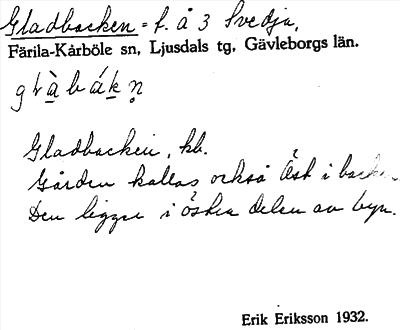 Gladbacken = f. å 3 Svedja,
Färila-Kårböle sn, Ljusdals tg, Gävleborgs län.
Gladbacken, kb.
Gården kallas också Öst i backen
Den ligger i östra delen av byn.
Erik Eriksson 1932.